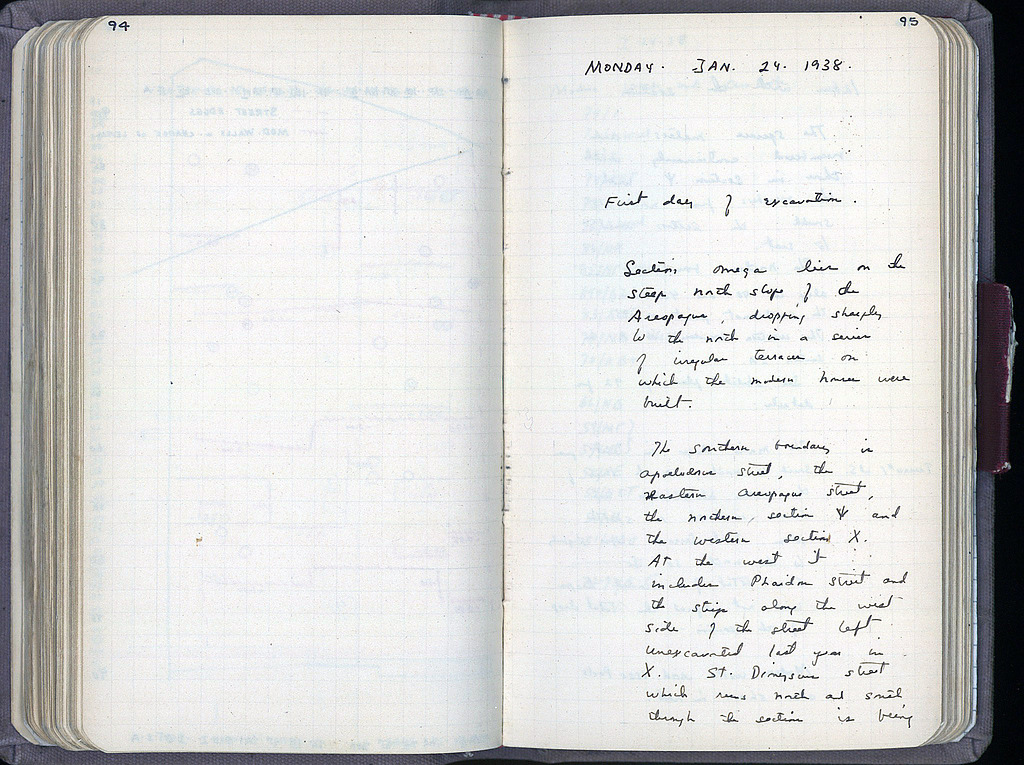 94
95
MONDAY. JAN. 24. 1938.
First day of excavation.
Section omega lies on the
steep north slope of the
Areopagus, dropping sharply
to the north in a series
of irregular terraces on
which the modern houses were
built.
The southern boundary is
Apollodorus street, the
Eastern Areopagus street,
the northern, section Ψ and
the western section X.
At the west it
includes Phaidon street and
the strip along the west
side of the street left
unexcavated last year in
X. St. Dionysius street
which runs north and south
through the section is being